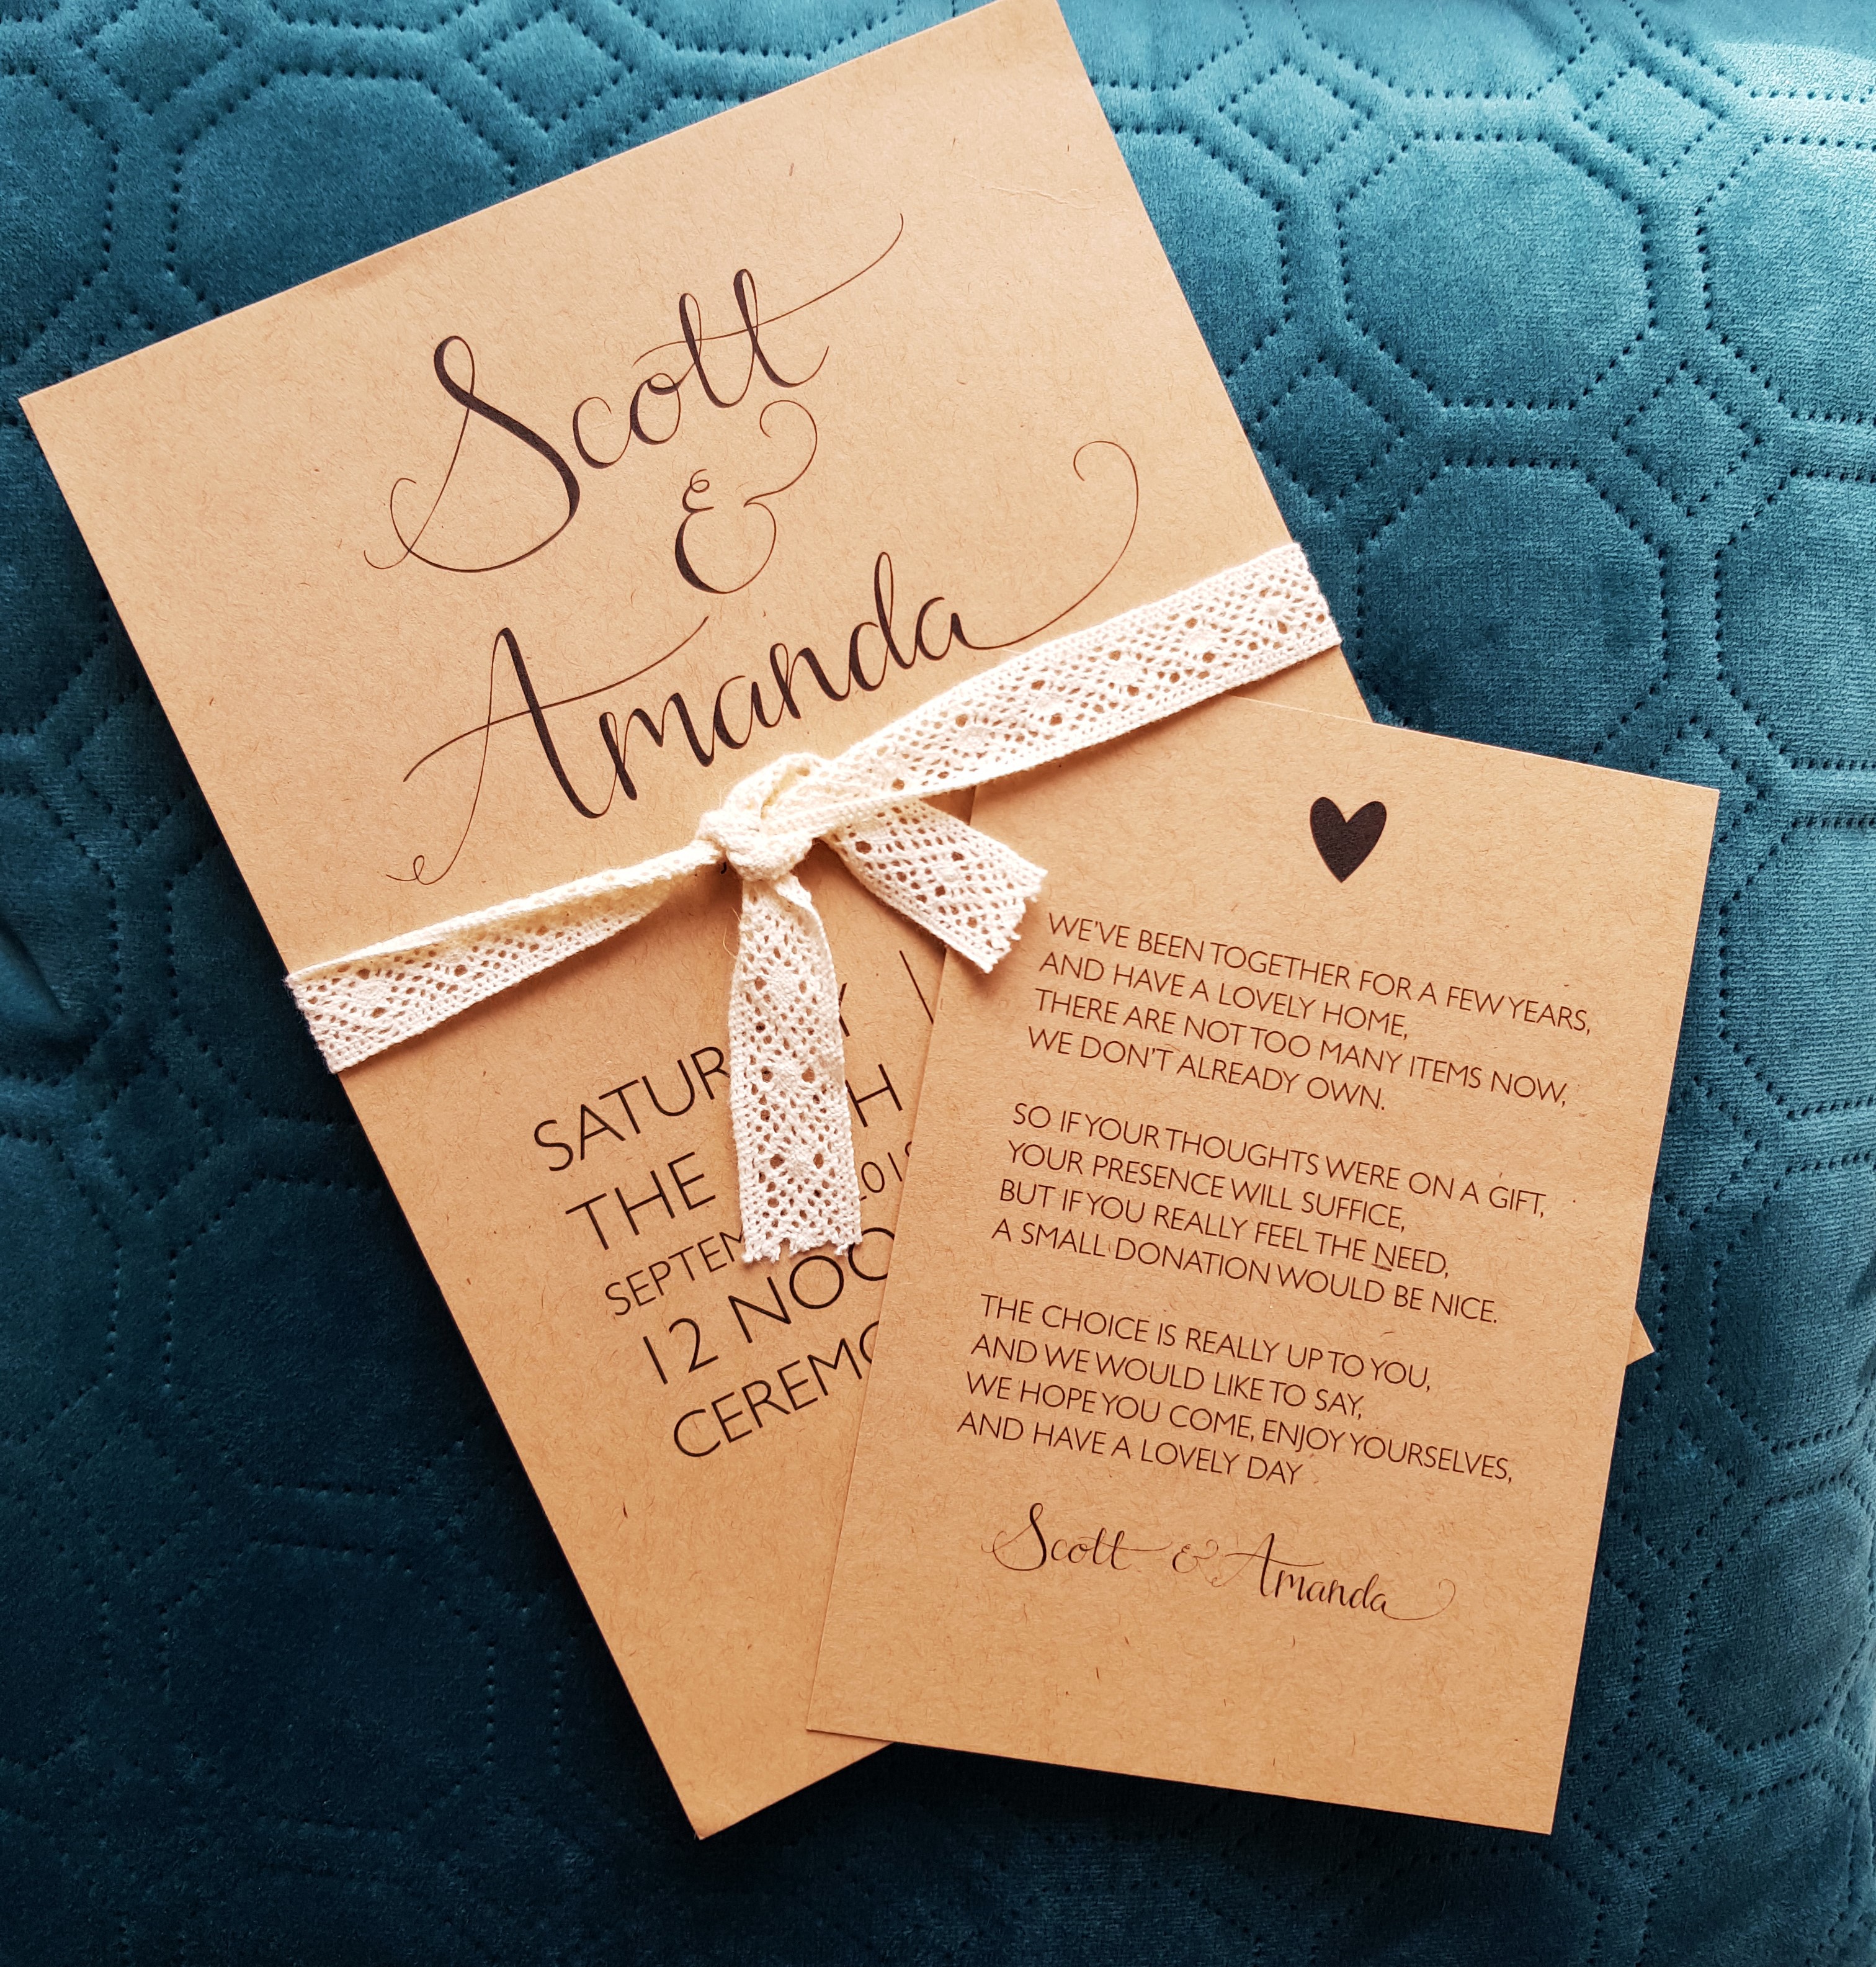 Scott
&
Amanda
SATUR Y
THE H
SEPTEM 201
12 NOO
CEREMO
WE'VE BEEN TOGETHER FOR A FEW YEARS,
AND HAVE A LOVELY HOME,
THERE ARE NOT TOO MANY ITEMS NOW,
WE DON'T ALREADY OWN.
SO IF YOUR THOUGHTS WERE ON A GIFT,
YOUR PRESENCE WILL SUFFICE,
BUT IF YOU REALLY FEEL THE NEED,
A SMALL DONATION WOULD BE NICE.
THE CHOICE IS REALLY UP TO YOU,
AND WE WOULD LIKE TO SAY,
WE HOPE YOU COME, ENJOY YOURSELVES,
AND HAVE A LOVELY DAY
Scott & Amanda